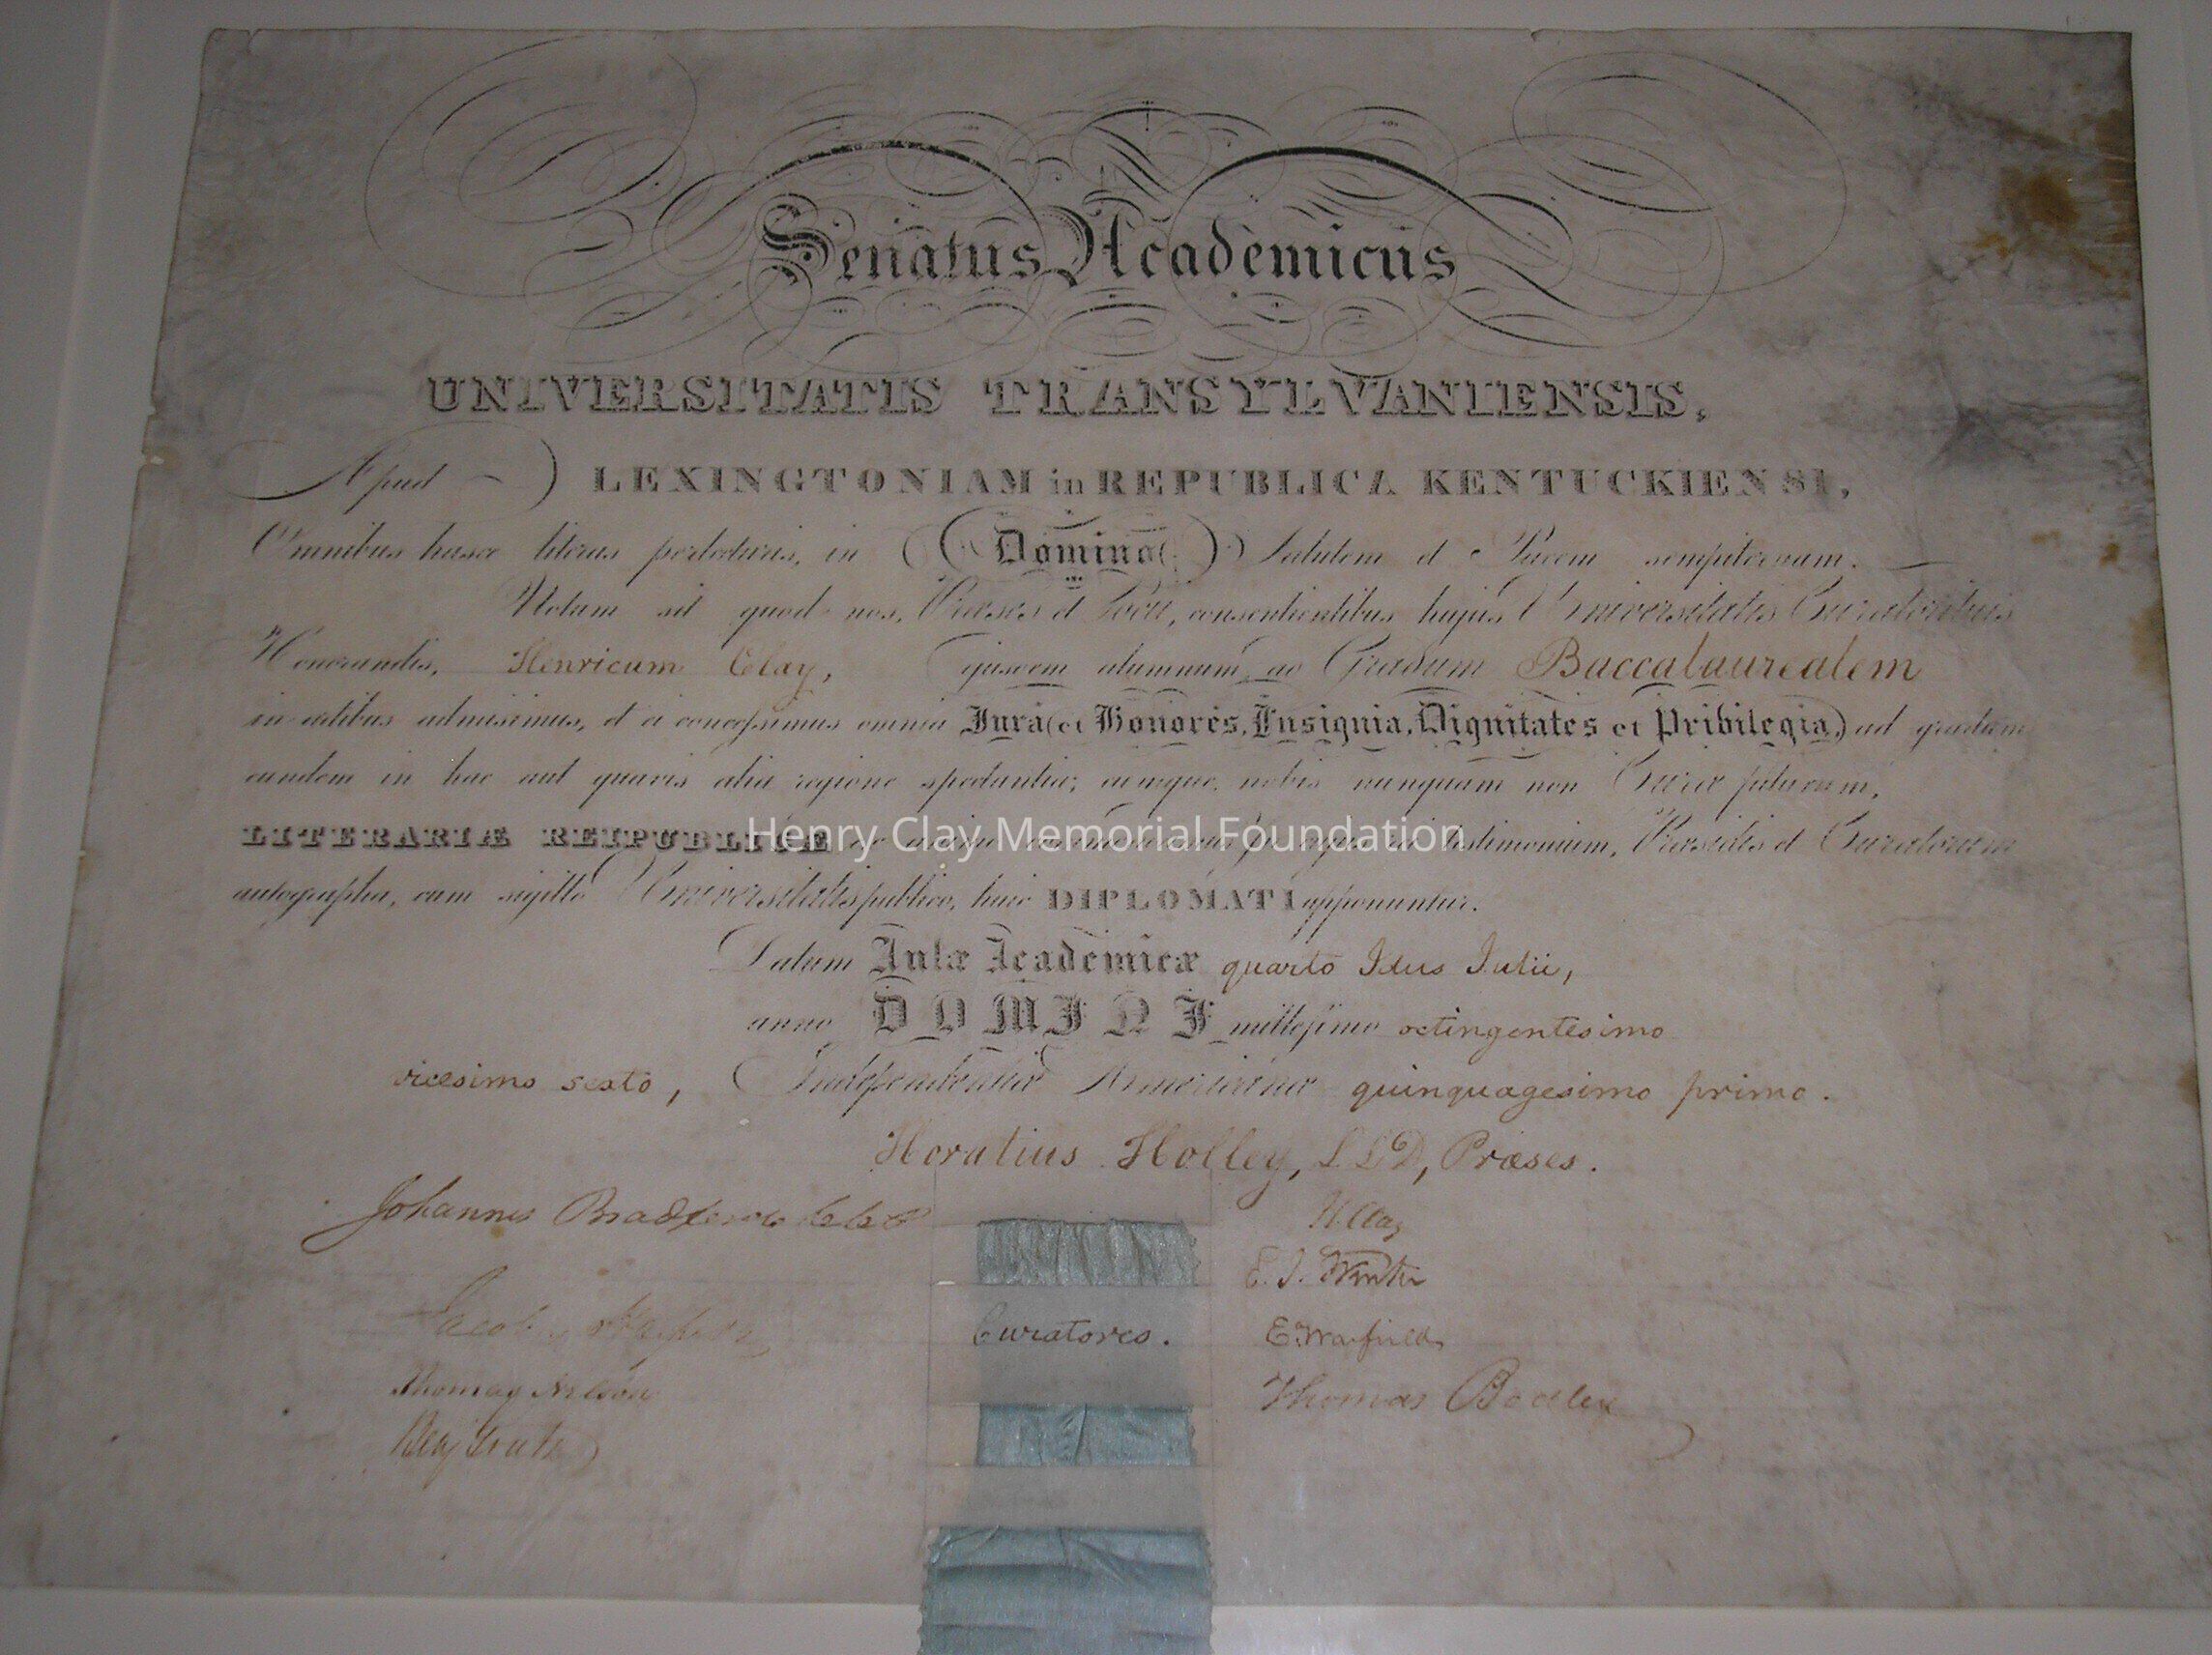 Senatus Academicus
UNIVERSITATIS TRANSYLVANIENSIS,
Apud LEXINGTONIAM in REPUBLICA KENTUCKIENSI,
Omnibus hasce literas perlecturis, in Domino Salutem et Pacem sempiternam.
Notum sit quod nos, Præses et Socii, consentientibus hujus Universitatis Curatoribus
Honorandis, Henricum Clay, ejusdem alumnum, ad Gradum Baccalaurealem
in artibus admisimus, et ei concessimus omnia Jura et Honores, Insignia, Dignitates et Privilegia, ad gradum
eundem in hac aut quavis alia regione spectantia; eumque, nobis nunquam non Curæ futurum,
LITERARIÆ REIPUBLICÆ testimonium, Præsidis et Curatorum
Henry Clay Memorial Foundation
autographa, cum sigillo Universitatis publico, huic DIPLOMATI apponuntur.
Datum Aulæ Academicæ quarto Idus Julii,
anno DOMINI millesimo octingentesimo
vicesimo sexto, Independentiæ Americanæ quinquagesimo primo.
Horatius Holley, LLD, Præses.
Johannes
H. Clay
E. J. Winter
Jacob
Curatores.
E. Warfield
Thomas Nelson
Thomas Bodley
Benj Gratz